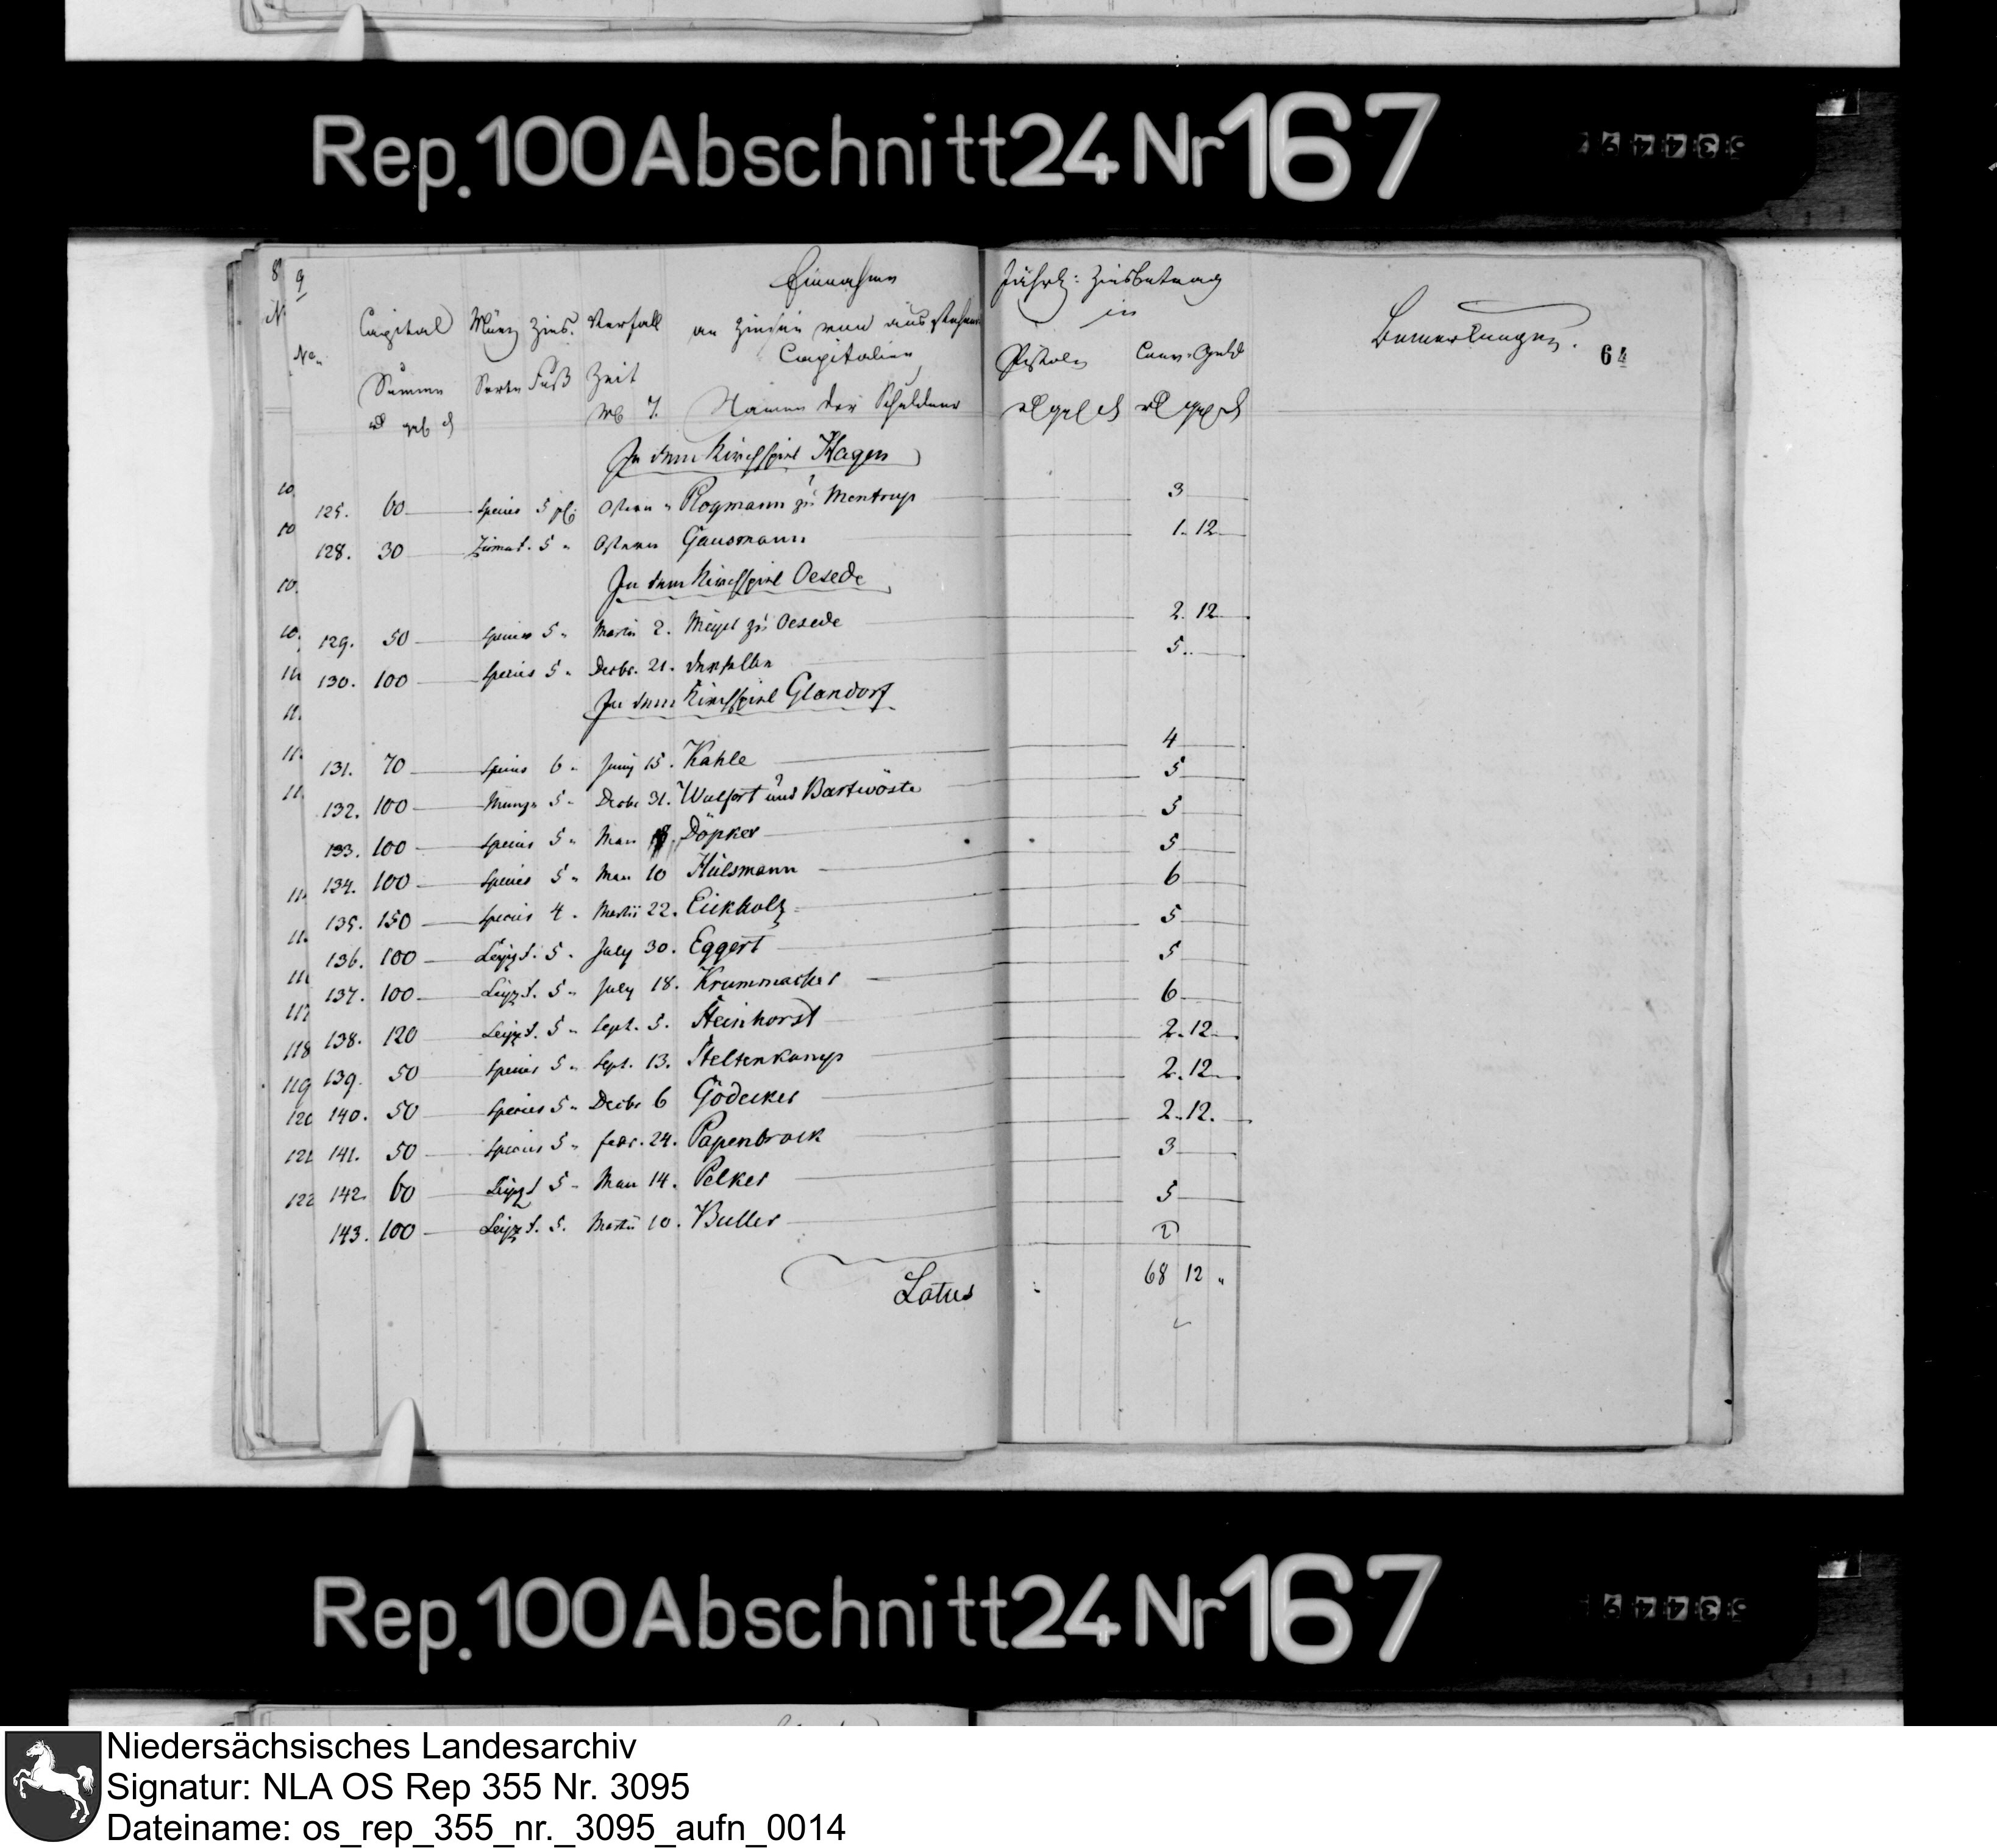 Rep. 100 Abschnitt 24 Nr 167
Einnahme
an Zinsen von ausstehen
Capitalien
Namen der Schuldner
No.
Capital
Summe
Münz Sorte
Zins Fuß
Verfall Zeit
Jährl: Zinsbetrag
in
Pistolen Conv. Geld
Bemerkungen.
64
In dem Kirchspiel Hagen
125. 60 Species 5 Ostern Rogmann zu Mentrup 3
128. 30 5 " Ostern Gausmann 1. 12
In dem Kirchspiel Oesede
129. 50 Species 5 " Martii 2. Meyer zu Oesede 2. 12
130. 100 Species 5 " Decbr. 21. derselbe 5
In dem Kirchspiel Glandorf
131. 70 Species 6 " Juny 15. Kahle 4
132. 100 Münze 5 " Decbr 31. Wulfert und Bartwöste 5
133. 100 Species 5 " May Döpker 5
134. 100 Species 5 " May 10 Hülsmann 5
135. 150 Species 4 " Martii 22. Eickholz 6
136. 100 Leipz. 5 " July 30. Eggert 5
137. 100 Leipz. 5 " July 18. Krummacher 5
138. 120 Leipz. 5 " Sept. 5. Steinhorst 6
139. 50 Species 5 " Sept. 13. Steltenkamp 2. 12
140. 50 Species 5 " Decbr 6 Gödecker 2. 12
141. 50 Species 5 " Febr. 24. Papenbrock 2. 12.
142. 60 Leipz 5 " May 14. Pelker 3
143. 100 Leipz. 5. Martii 10. Buller 5
Latus 68 12 "
Rep. 100 Abschnitt 24 Nr 167
Niedersächsisches Landesarchiv
Signatur: NLA OS Rep 355 Nr. 3095
Dateiname: os_rep_355_nr._3095_aufn_0014